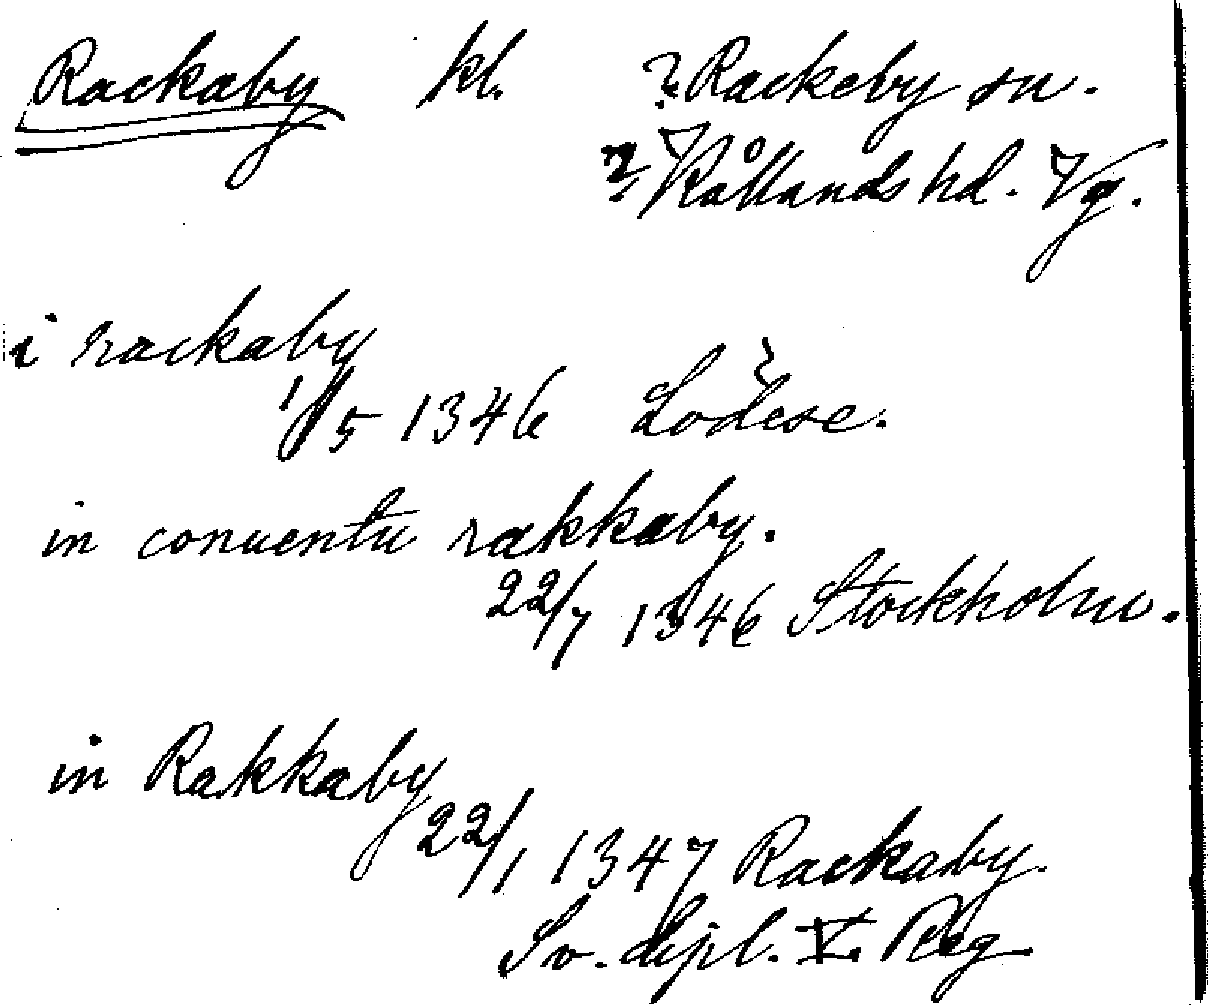 Rackaby kl. ? Rackeby sn.
? Kållands hd. Vg.
i rackaby
1/5 1346 Lödese.
in conuentu rakkaby.
22/7 1346 Stockholm.
in Rakkaby
22/1 1347 Rackaby.
Sv. dipl. V. Reg